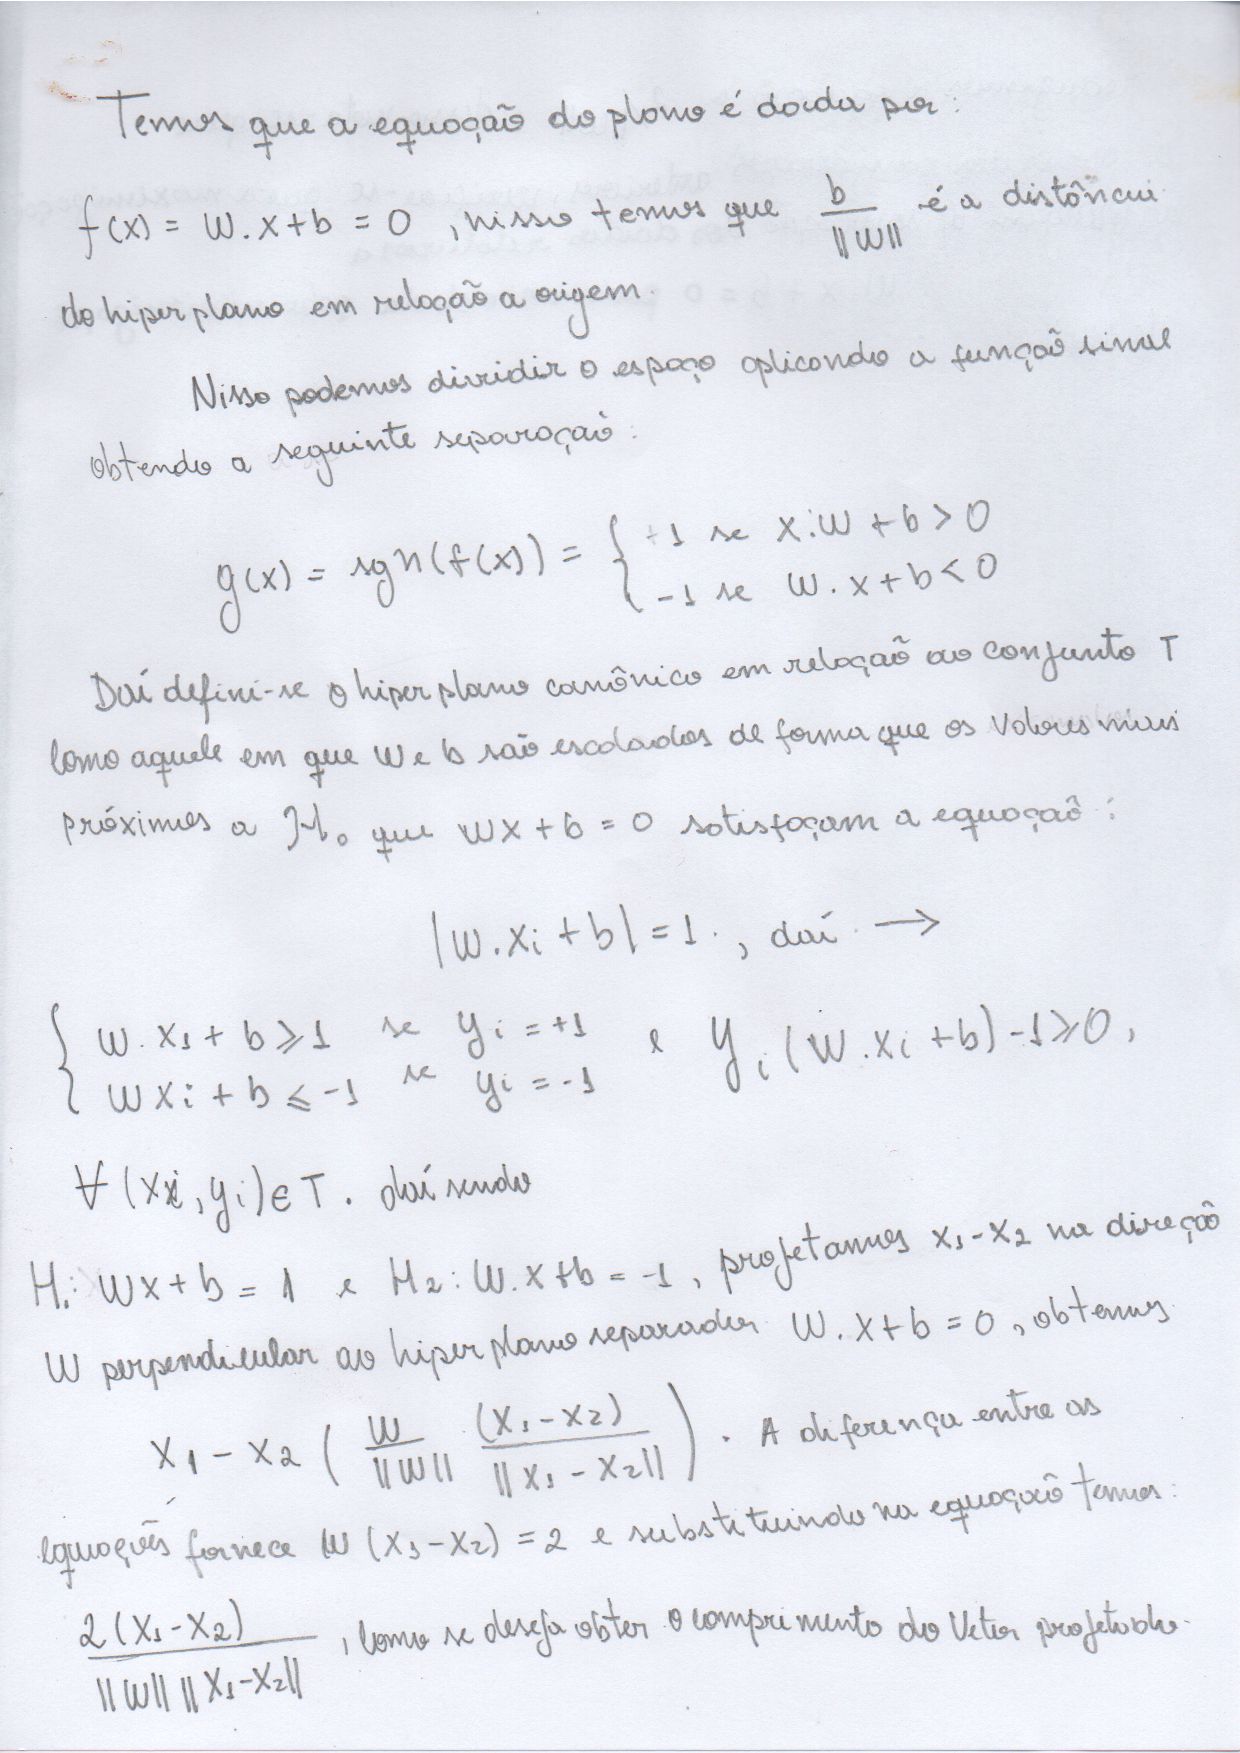 Temos que a equação do plano é dada por:
f(x) = W.X+b = 0, nisso temos que b/||W|| é a distância
do hiperplano em relação a origem.
Nisso podemos dividir o espaço aplicando a função sinal
obtendo a seguinte separação:
g(x) = sgn(f(x)) = { +1 se X.W + b > 0
-1 se W.X+b < 0
Daí defini-se o hiperplano canônico em relação ao conjunto T
como aquele em que W e b são escalados de forma que os valores mais
próximos a H₀ que WX+b = 0 satisfaçam a equação:
|W.Xi + b| = 1., daí →
{ W.X₁ + b ⩾ 1 se yi = +1 e yi (W.Xi + b) - 1 ⩾ 0,
WXi + b ⩽ -1 se yi = -1
∀ (Xi, yi) ∈ T. daí sendo
H₁: WX+b = 1 e H₂: W.X+b = -1, projetamos X₁-X₂ na direção
W perpendicular ao hiperplano separador W.X+b = 0, obtemos
X₁ - X₂ ( W/||W|| (X₁-X₂)/||X₁-X₂|| ). A diferença entre as
equações fornece W (X₁-X₂) = 2 e substituindo na equação temos:
2(X₁-X₂)/||W|| ||X₁-X₂||, como se deseja obter o comprimento do vetor projetado.